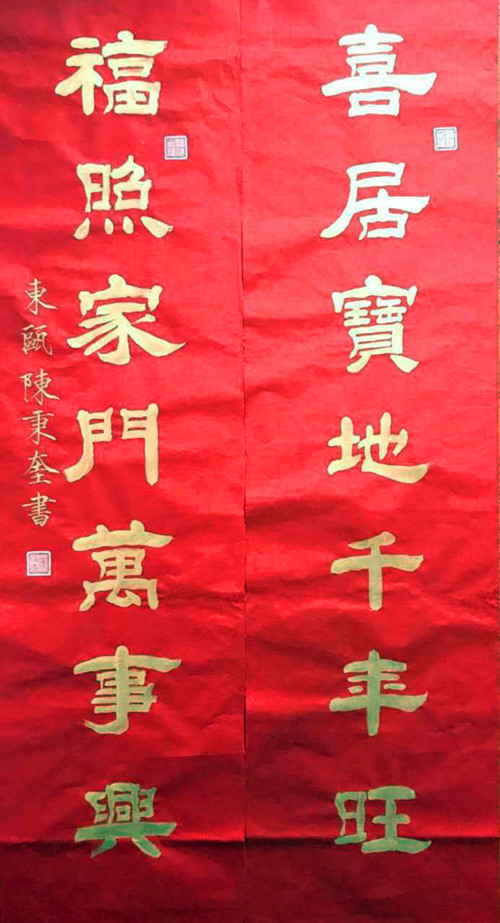 喜居寶地千年旺
福照家門萬事興
東甌陳秉奎書